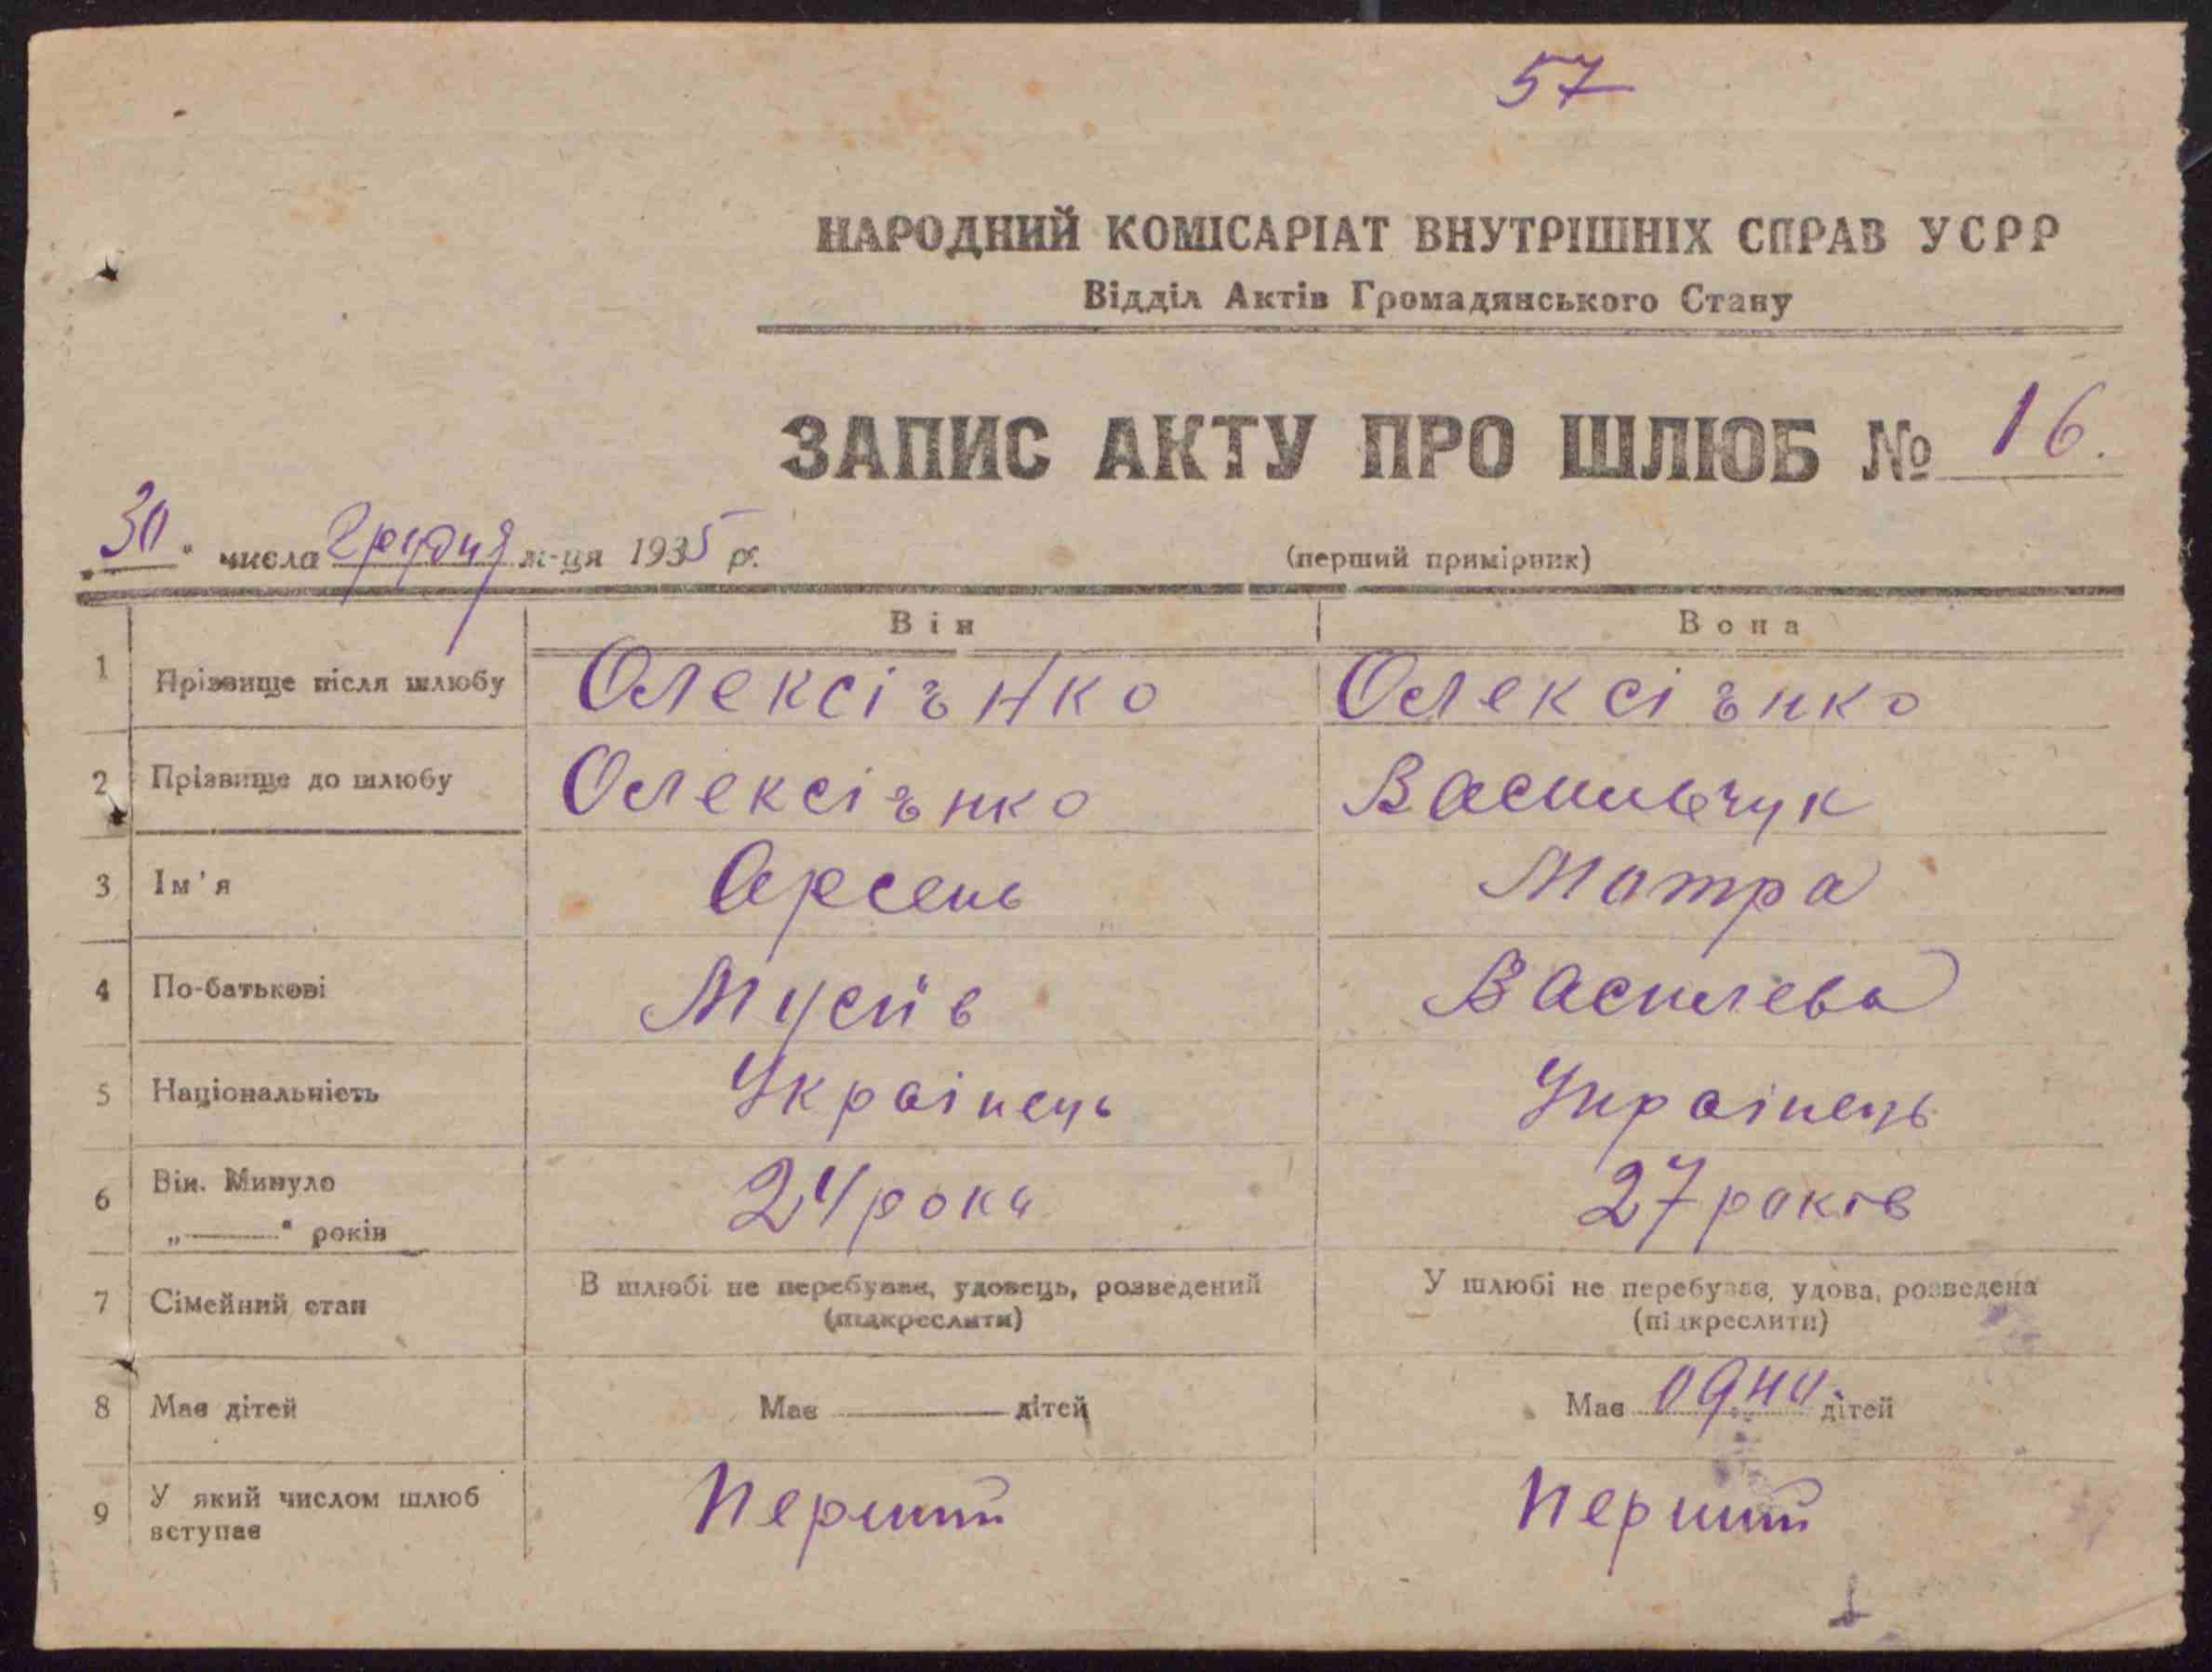 57
НАРОДНИЙ КОМІСАРІАТ ВНУТРІШНІХ СПРАВ УСРР
Відділ Актів Громадянського Стану
ЗАПИС АКТУ ПРО ШЛЮБ № 16.
„30" числа Грудня м-ця 1935 р.
(перший примірник)
Він Вона
1 Прізвище після шлюбу Олексієнко Олексієнко
2 Прізвище до шлюбу Олексієнко Васильчук
3 Ім'я Арсень Мотра
4 По-батькові Мусіїв Василева
5 Національність Украінець Украінець
6 Вік. Минуло 24 роки 27 років
„———" років
7 Сімейний стан В шлюбі не перебуває, удовець, розведений У шлюбі не перебуває, удова, розведена
(підкреслити) (підкреслити)
8 Має дітей Має ——— дітей Має дітей
9 У який числом шлюб Перший Перший
вступає